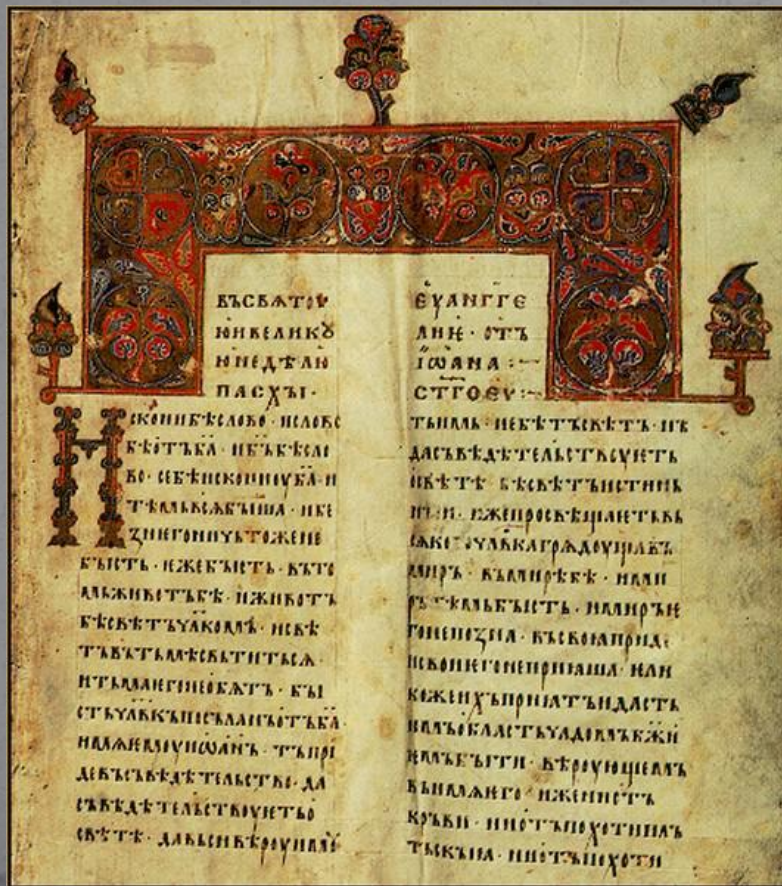 ВЪСВѦТОУ
ЮИВЕЛИКꙊ
ЮНЕДѢЛЮ
ПАСХЫ·
Исконибѣслово·исло­во
бѣотъб҃а·иб҃ъбѣсло
во·себѣискониоуб҃а·и
тѣмьвсѧбыша·ибе
знегоничьтожене
бысть·ежебысть·въто
мьживотъбѣ·иживотъ
бѣсвѣтъч҃лкомъ·исвѣ
тъвътьмѣсвьтитьсѧ·
итьмаѥгонеобѧтъ·бы
стьч҃лвкъпосъланъотъб҃а·
имѧѥмоуиѡанъ·тъпри
девъсъвѣдѣтельство·да
съвѣдѣтельствоуѥтьо
свѣтѣ·давьсивѣроуимоу
ЕУАНГГЕ
ЛИѤ·ОТЪ
ІѠАНА:~
СТ҃ГОЕУ:~
тьимь·небѣтъсвѣтъ·нъ
дасъвѣдѣтельствоуѥть
освѣтѣ·бѣсвѣтъистинь
ныи·ижепросвѣщаѥтьвь
сѧкогоч҃лвкагрѧдоущавъ
миръ·въмирѣбѣ·ими
рътѣмьбысть·имиръѥ
гонепозна·въсвоꙗприде
исвоиѥгонеприꙗша·ели
кожеихъприꙗтъидасть
имъобластьчадомъб҃жи
ѥмъбыти·вѣроующемъ
въимѧѥго·иженеотъ
кръви·ниотъпохотипль
тьскыꙗ·ниотъпохоти